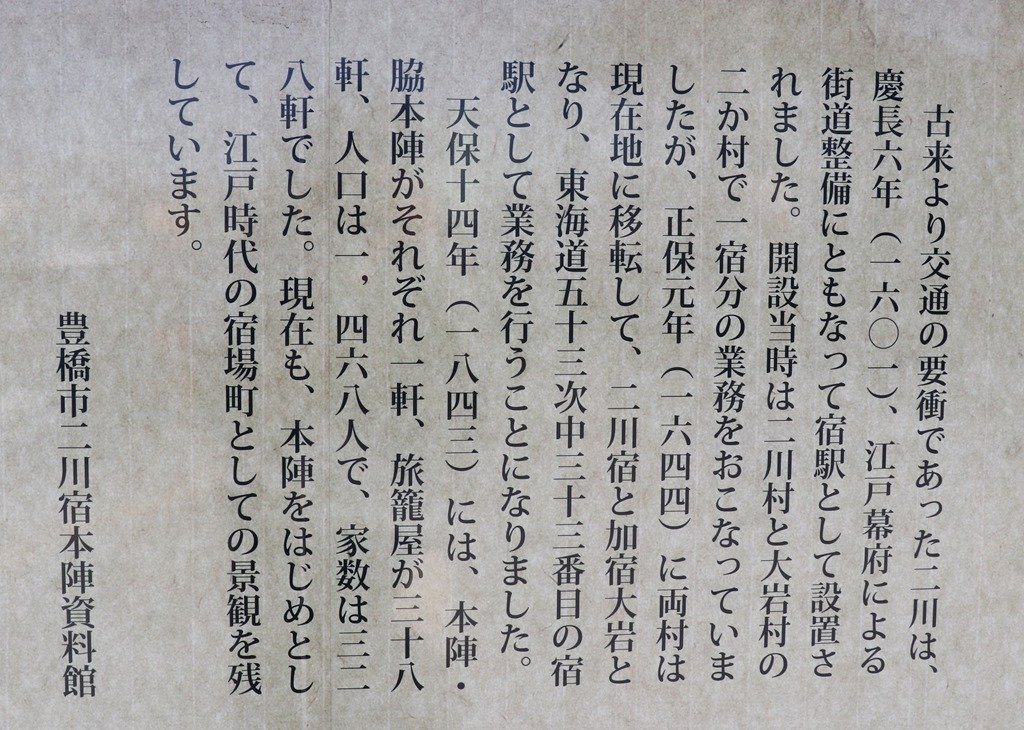 古来より交通の要衝であった二川は、
慶長六年（一六〇一）、江戸幕府による
街道整備にともなって宿駅として設置さ
れました。開設当時は二川村と大岩村の
二か村で一宿分の業務をおこなっていま
したが、正保元年（一六四四）に両村は
現在地に移転して、二川宿と加宿大岩と
なり、東海道五十三次中三十三番目の宿
駅として業務を行うことになりました。
天保十四年（一八四三）には、本陣・
脇本陣がそれぞれ一軒、旅籠屋が三十八
軒、人口は一，四六八人で、家数は三二
八軒でした。現在も、本陣をはじめとし
て、江戸時代の宿場町としての景観を残
しています。
豊橋市二川宿本陣資料館